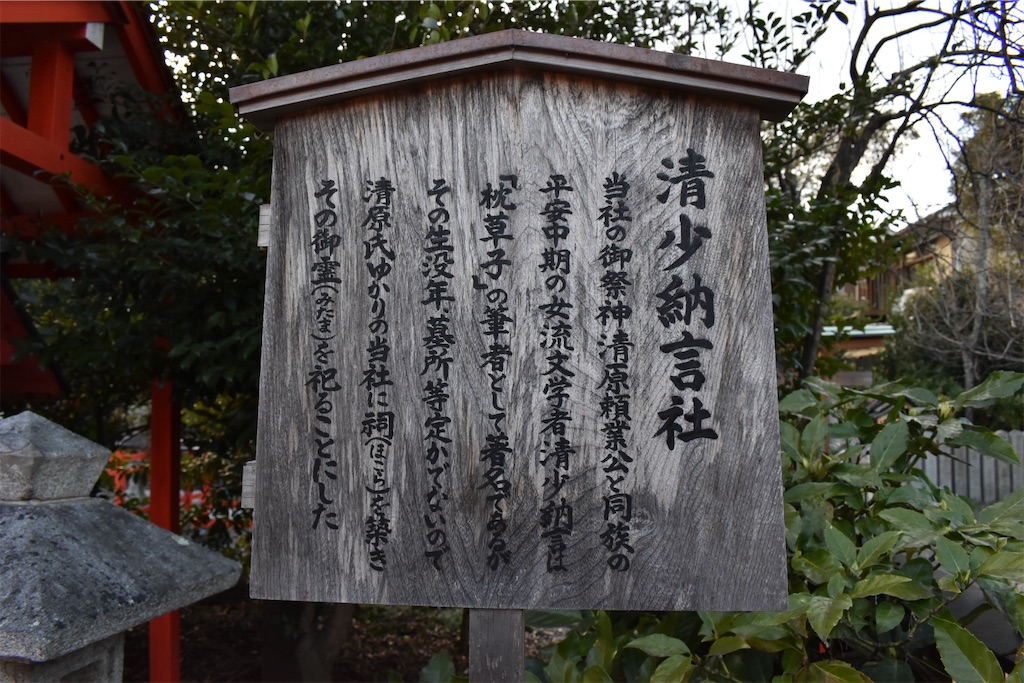 清少納言社
当社の御祭神清原頼業公と同族の
平安中期の女流文学者清少納言は
「枕草子」の筆者として著名であるが
その生没年、墓所等定かでないので
清原氏ゆかりの当社に祠(ほこら)を築き
その御霊(みたま)を祀ることにした